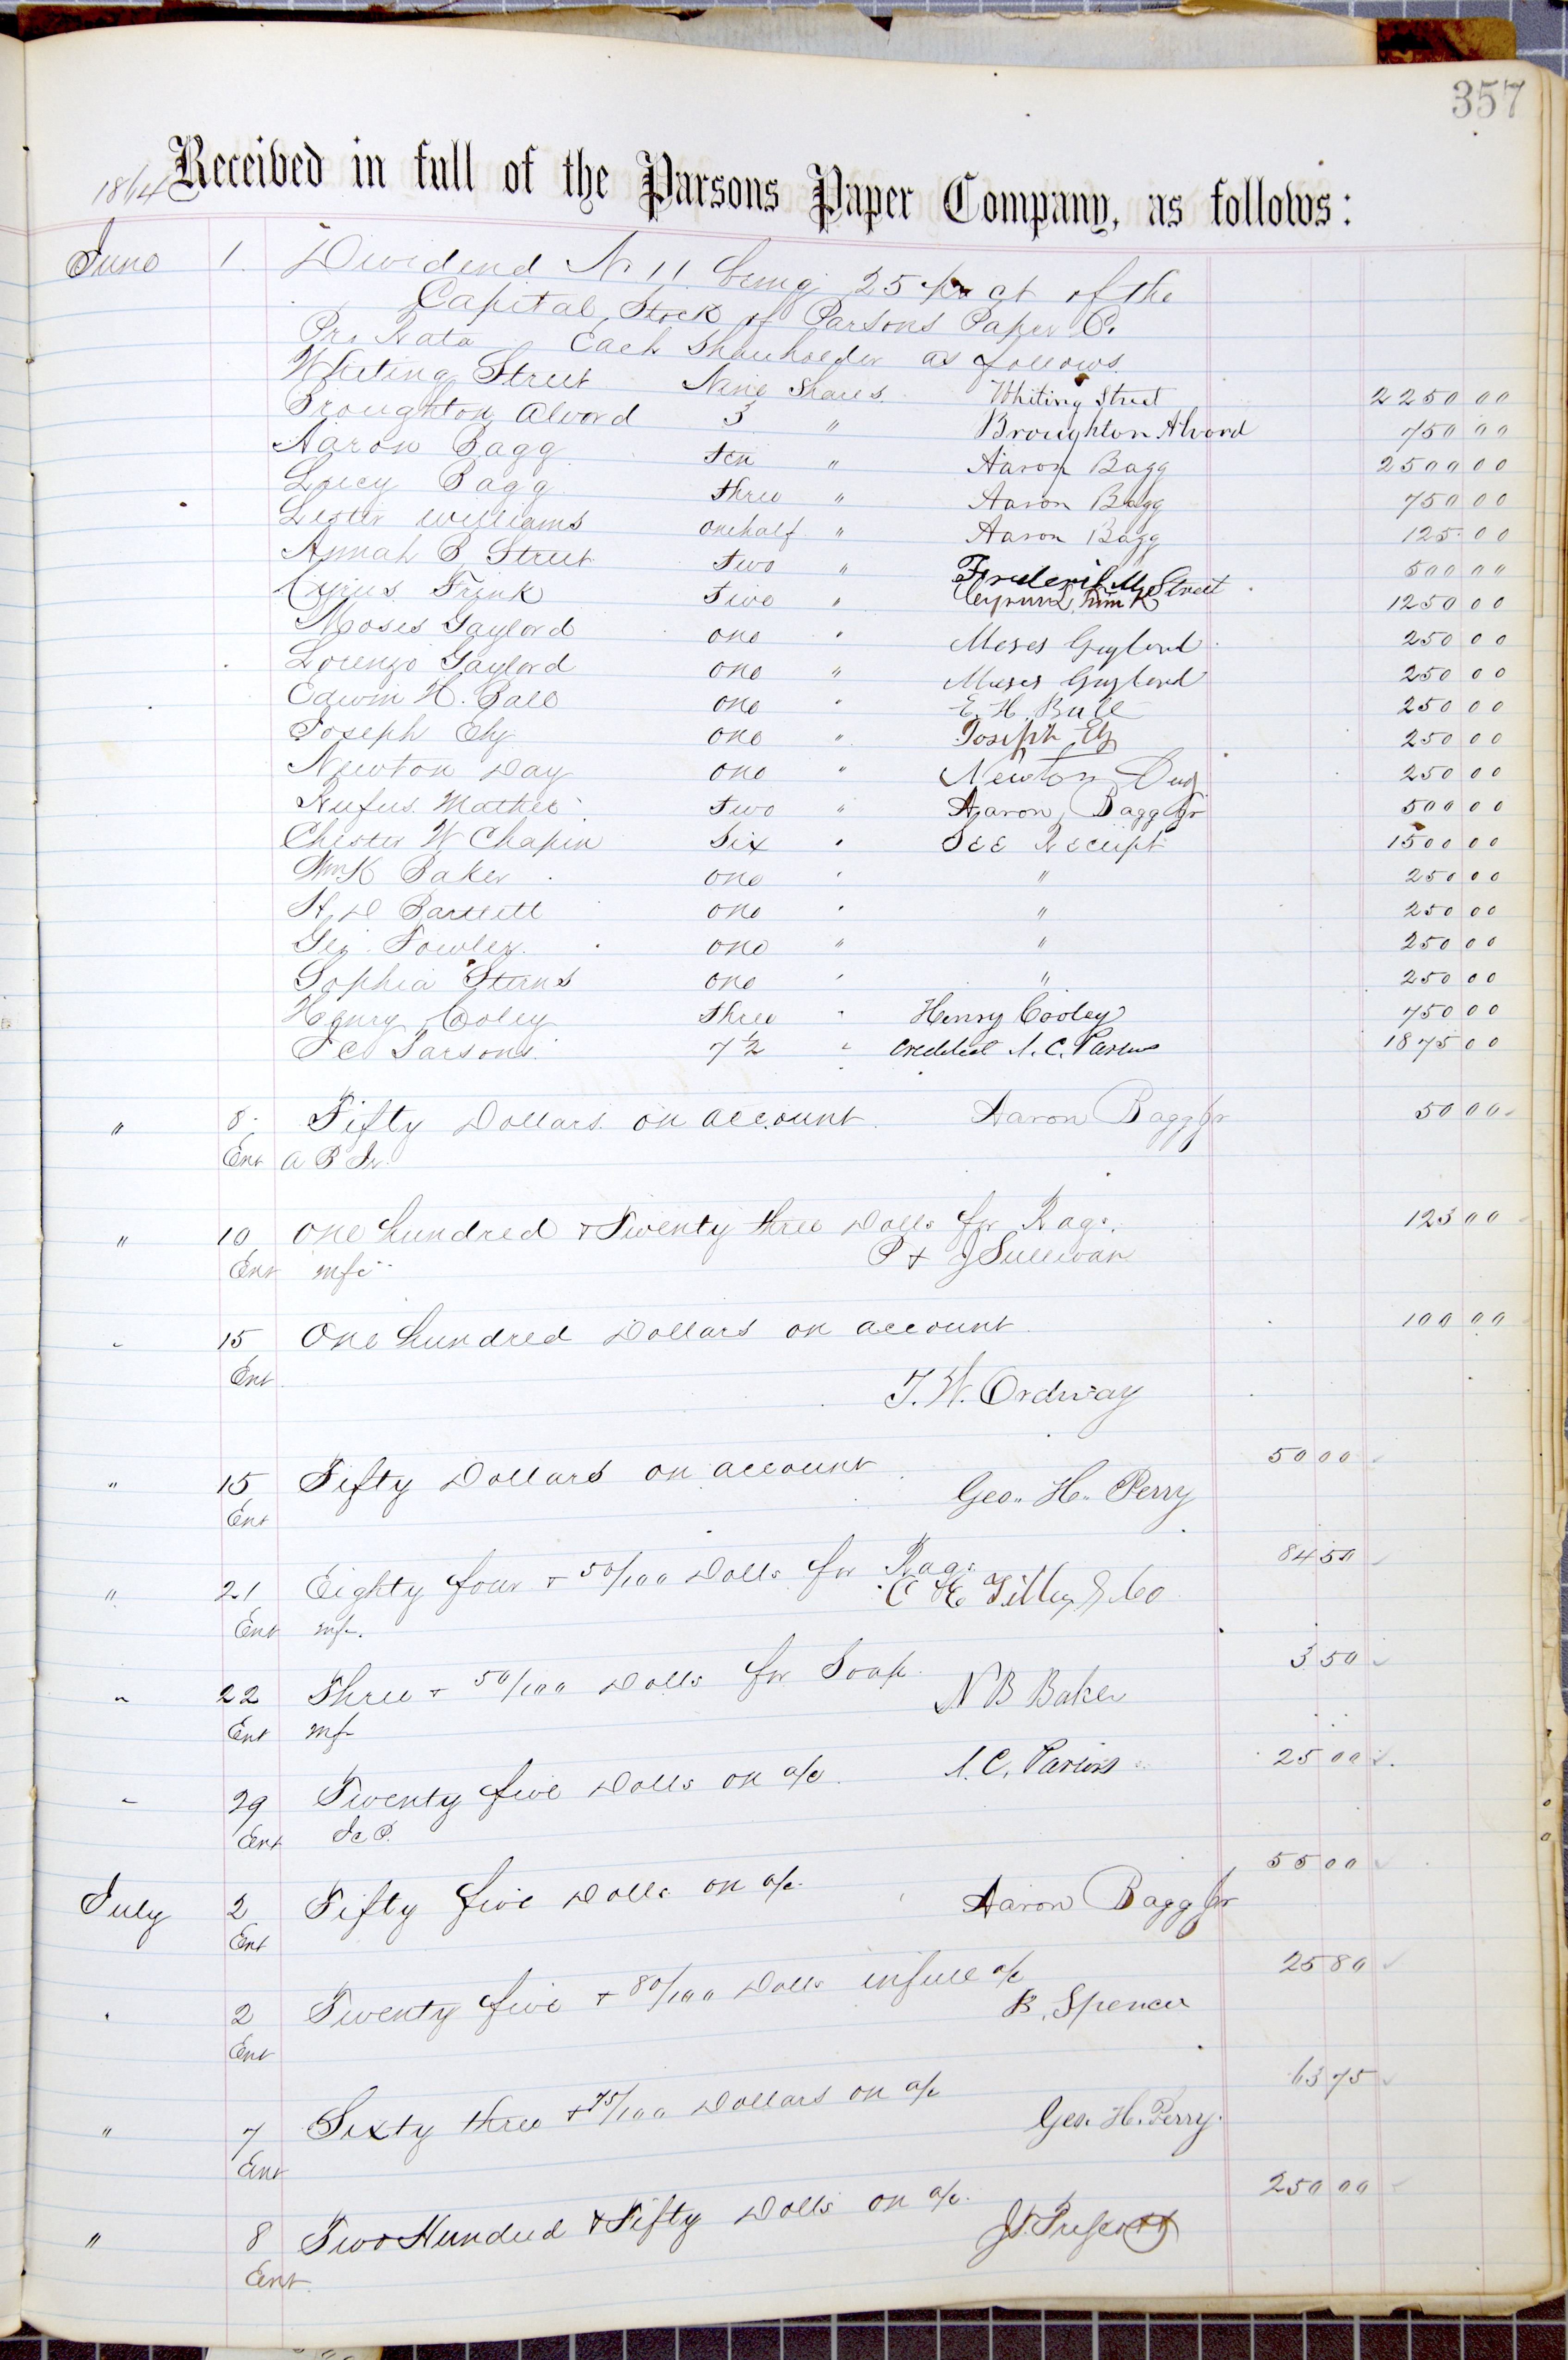 357
1864 Received in full of the Parsons Paper Company, as follows:
June 1. Dividend No 11 being 25 per ct of the
Capital Stock of Parsons Paper Co.
Pro Rata Each Shareholder as follows.
Whiting Street Nine Shares. Whiting Street 2250 00
Broughton Alvord 3 " Broughton Alvord 750 00
Aaron Bagg ten " Aaron Bagg 2500 00
Lucy Bagg three " Aaron Bagg 750 00
Lester Williams onehalf " Aaron Bagg 125 00
Annah B Street Two " Frederick M Street 500 00
Cyrus Frink Five " Cyrus Frink 1250 00
Moses Gaylord one " Moses Gaylord 250 00
Lorenzo Gaylord one " Moses Gaylord 250 00
Edwin H. Ball one " E. H. Ball 250 00
Joseph Ely one " Joseph Ely 250 00
Newton Day one " Newton Day 250 00
Rufus Mather Two " Aaron Bagg Jr 500 00
Chester W Chapin Six " See Receipt 1500 00
Wm K Baker one " " 250 00
H D Bartlett one " " 250 00
Geo. Fowler one " " 250 00
Sophia Sterns one " " 250 00
Henry Cooley three " Henry Cooley 750 00
J C Parsons 7 1/2 " Credited J. C. Parsons 1875 00
" 8 Fifty Dollars on account. Aaron Bagg Jr 50 00
Ent A B Jr.
" 10 One hundred + Twenty three Dolls for Rags. 123 00
Ent mfc P + J Sullivan
" 15 One hundred Dollars on account 100 00
Ent
J. W. Ordway
" 15 Fifty Dollars on account Geo. H. Perry 50 00
Ent
" 21 Eighty four + 50/100 Dolls for Rags 84 50
Ent mfc. C H Tilley & Co
" 22 Three + 50/100 Dolls for Soap. N B Baker 3 50
Ent mfc
" 29 Twenty five Dolls on a/c. J. C. Parsons 25 00
Ent J C P.
July 2 Fifty five Dolls on a/c. Aaron Bagg Jr 55 00
Ent
" 2 Twenty five + 80/100 Dolls in full a/c 25 80
Ent B. Spencer
" 7 Sixty three + 75/100 Dollars on a/c Geo. H. Perry. 63 75
Ent
" 8 Two Hundred + Fifty Dolls on a/c. 250 00
Ent.